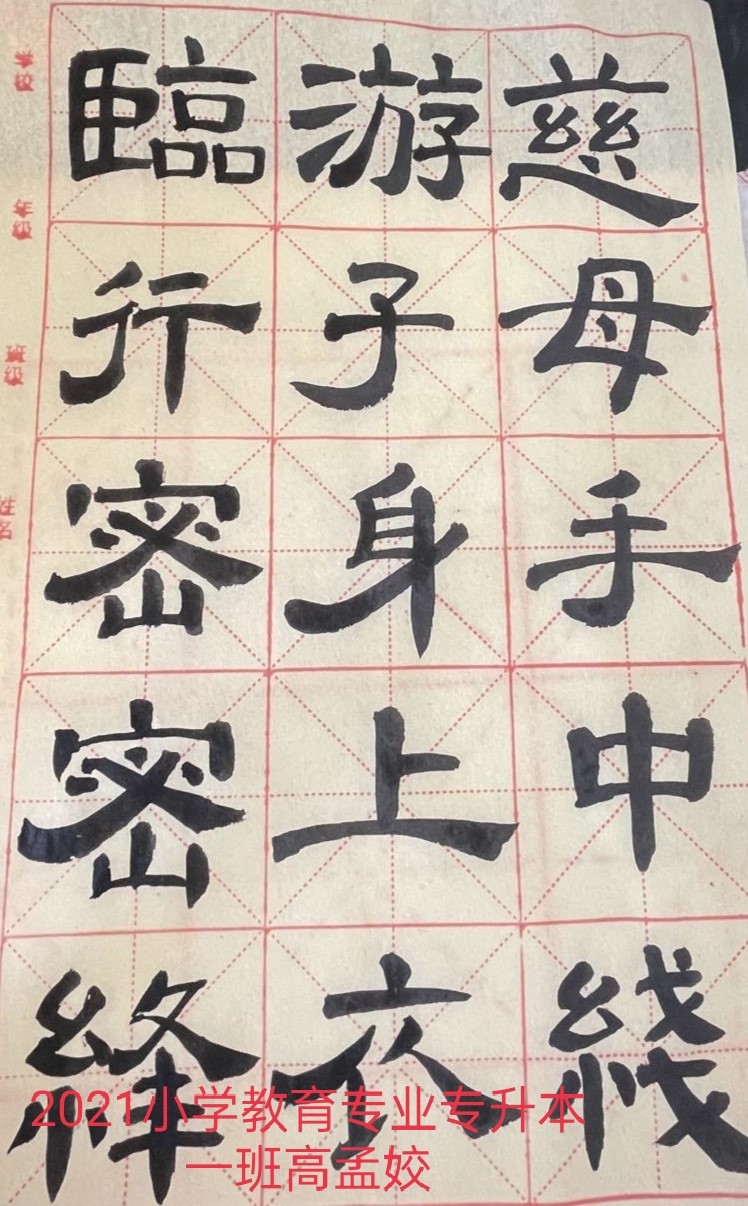 慈母手中綫
游子身上衣
臨行密密絳
学校
年级
班级
姓名
2021小学教育专业专升本
一班高孟姣